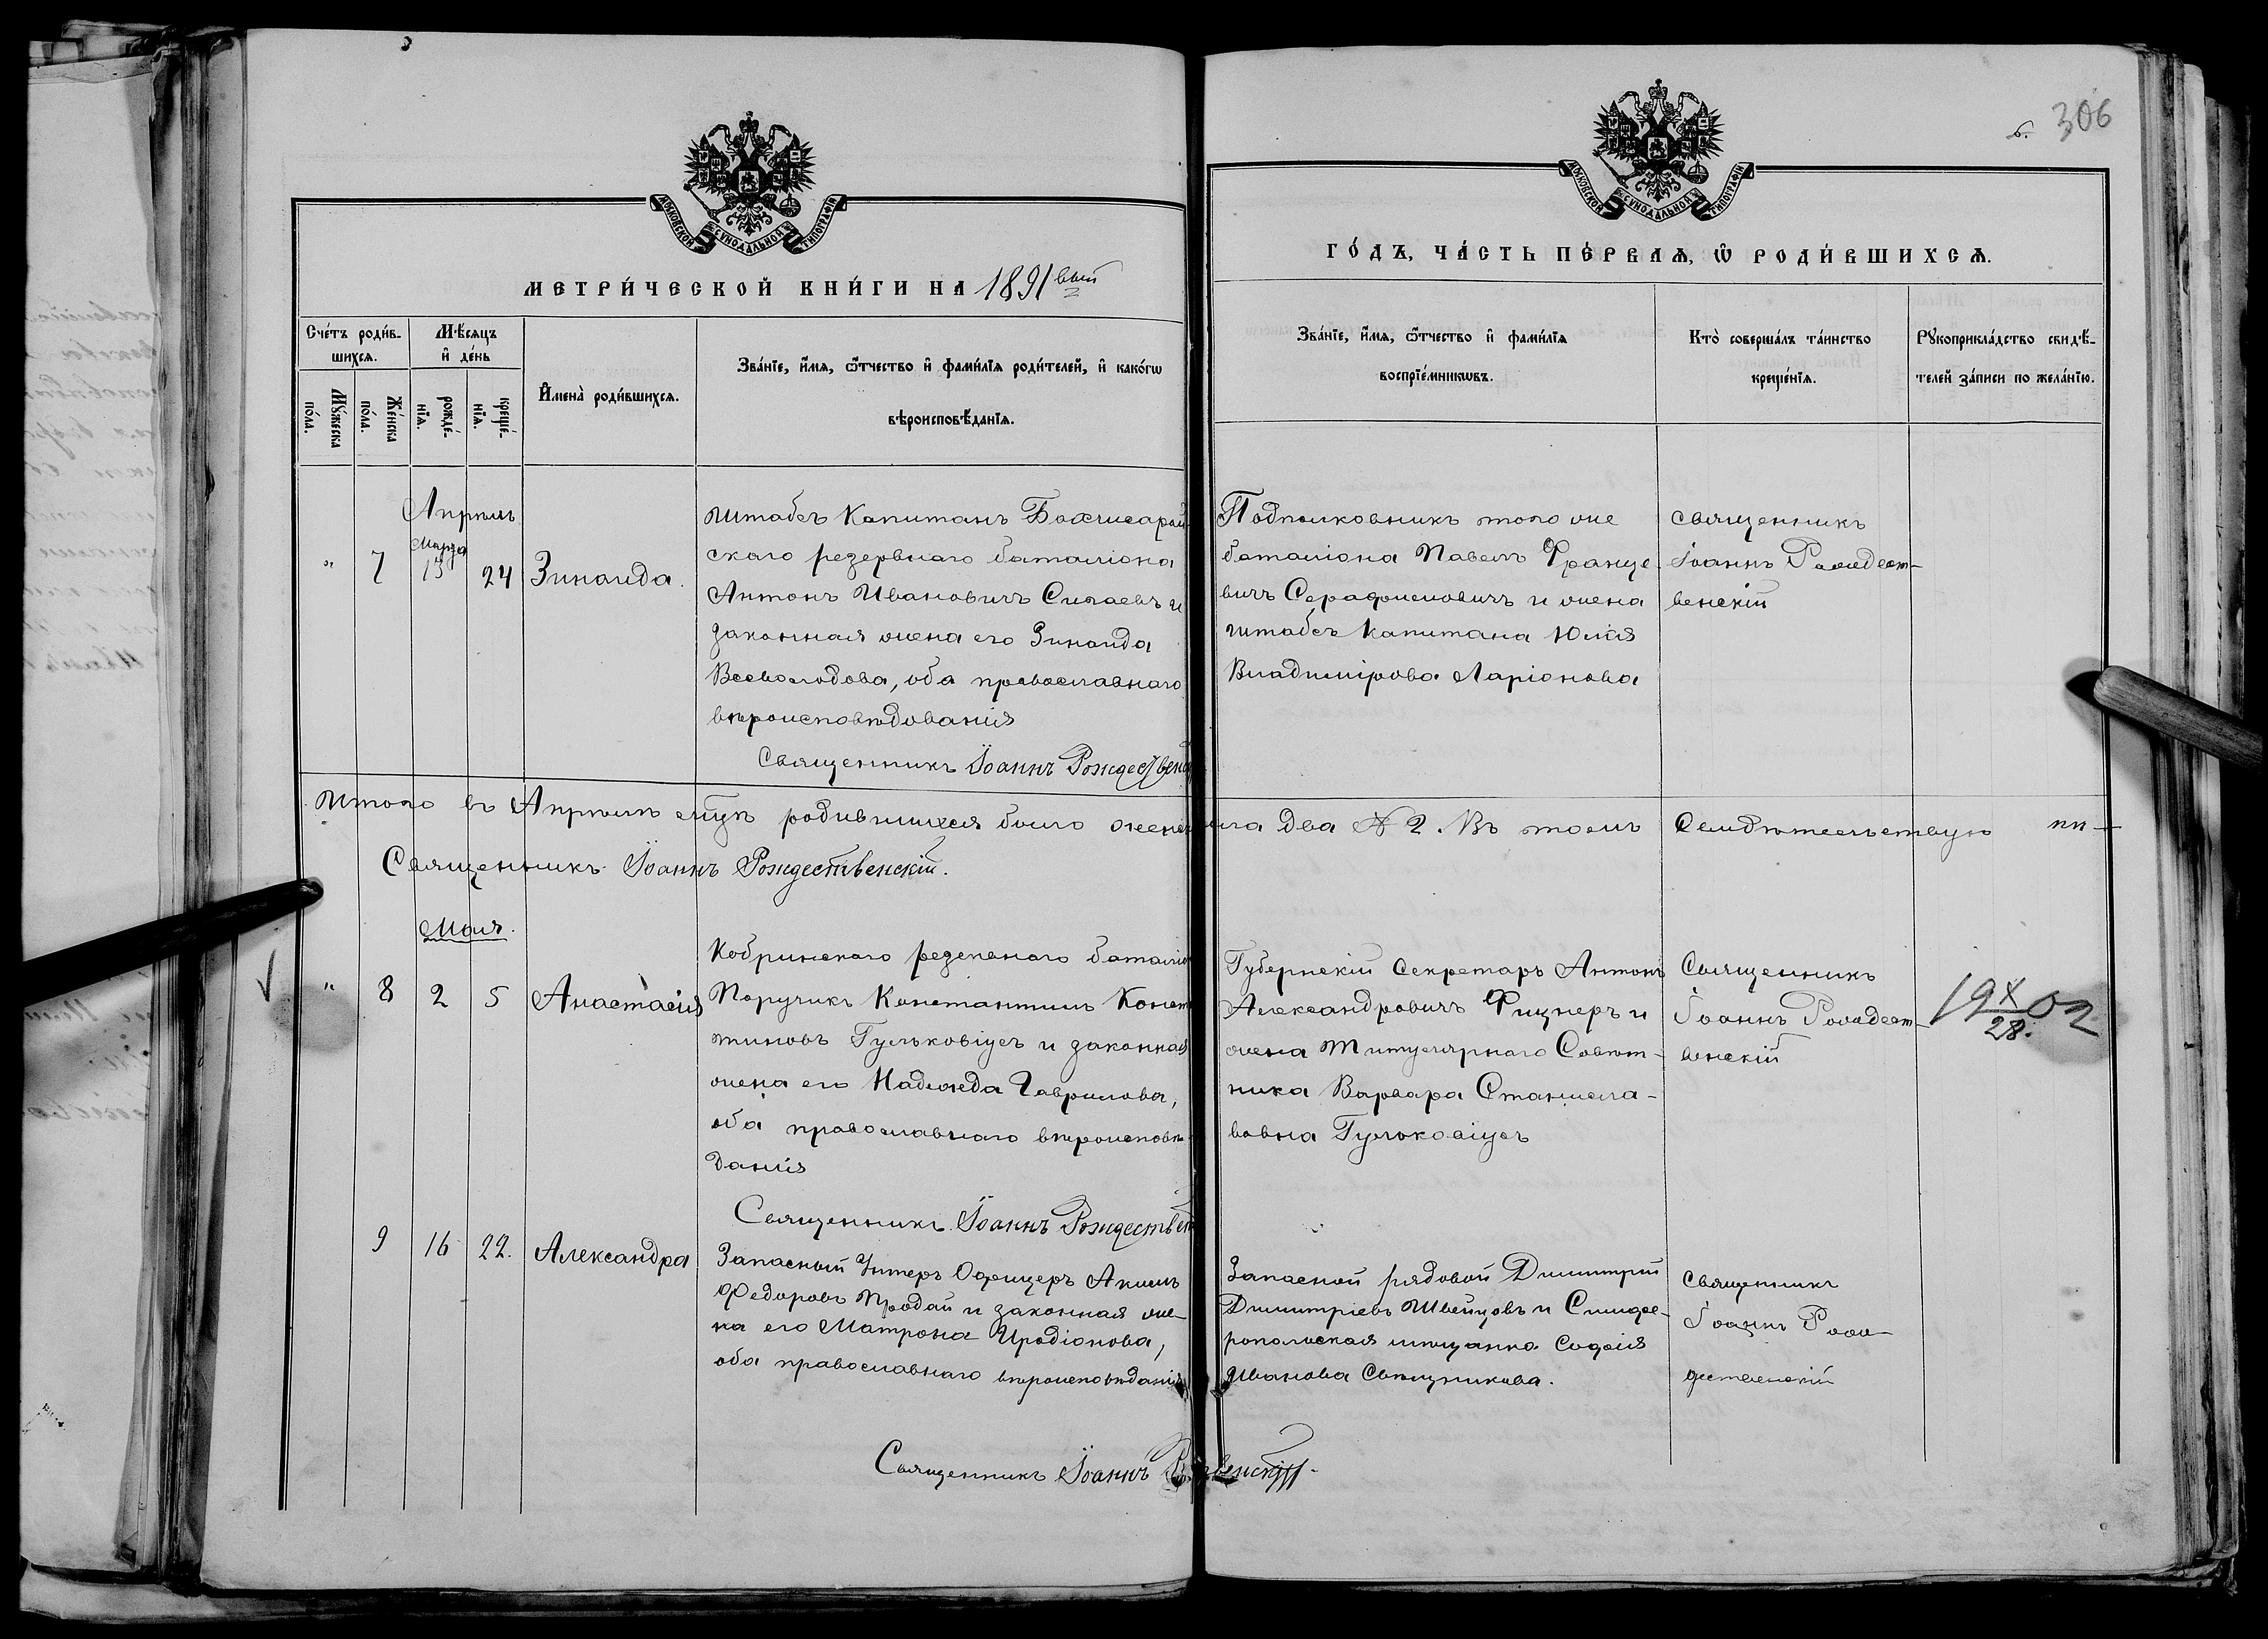 306
МОСКОВСКОЙ СѴНОДАЛЬНОЙ ТИПОГРАФІИ
МОСКОВСКОЙ СѴНОДАЛЬНОЙ ТИПОГРАФІИ
МЕТРИ́ЧЕСКОЙ КНИ́ГИ НА 1891вый
ГО́ДЪ, ЧА́СТЬ ПЕ́РВАѦ, Ѽ РОДИ́ВШИХСѦ.
Сче́тъ роди́в-
шихсѧ.
Мꙋ́жеска
по́ла.
Же́нска
по́ла.
Мѣ́сѧцъ
и҆ де́нь
рожде́-
нїѧ.
креще́-
нїѧ.
И҆мена̀ роди́вшихсѧ.
Зва́нїе, и҆́мѧ, ѻ҆́тчество и҆ фами́лїѧ роди́телей, и҆ како́гѡ
вѣроисповѣ́данїѧ.
Зва́нїе, и҆́мѧ, ѻ҆́тчество и҆ фами́лїѧ
воспрїе́мникѡвъ.
Кто̀ соверша́лъ та́инство
креще́нїѧ.
Рꙋкоприкла́дство свидѣ́-
телей за́писи по жела́нїю.
Апрѣль
" 7 Марта 15 24 Зинаида.
Штабсъ Капитанъ Бахчисарай-
скаго резервнаго баталіона
Антонъ Ивановичъ Силаевъ и
законная жена его Зинаида
Всеволодова, оба православнаго
вѣроисповѣдованія
Священникъ Іоаннъ Рождествен
Подполковникъ того же
баталіона Павелъ Франце-
вичъ Серафимовичъ и жена
штабсъ Капитана Юлія
Владимірова Ларіонова
священникъ
Іоаннъ Рождест-
венскій
Итого въ Апрѣлѣ мѣсѧцѣ родившихся было женскаго пола два № 2. Въ томъ Свидѣтельствую
Священникъ Іоаннъ Рождественскій.
Мая.
" 8 2 5 Анастасія
Кобринскаго резервнаго баталіо
Поручикъ Константинъ Конст
тиновъ Гульковіусъ и законная
жена его Надежда Гаврилова,
оба православнаго вѣроисповѣ-
данія
Священникъ Іоаннъ Рождествен
Губернскій Секретарь Антонъ
Александровичъ Фицнеръ и
жена Титулярнаго Совѣт-
ника Варвара Станисла-
вовна Гульковіусъ
Священникъ
Іоаннъ Рождест-
венскій
19 X/28. 02
9 16 22. Александра
Запасный Унтеръ Офицеръ Акимъ
Федоровъ Продай и законная же-
на его Матрона Иродіонова,
оба православнаго вѣроисповѣданія
Запасной рядовой Димитрій
Димитріевъ Швейцовъ и Симфе-
ропольская мѣщанка Софія
Иванова
священникъ
Іоаннъ Рож-
дественскій
Священникъ Іоаннъ Р венскій.